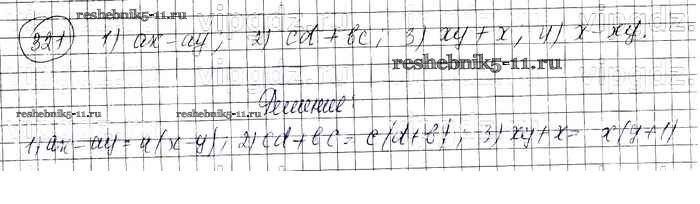 reshebnik5-11.ru
321 1) ax - ay; 2) cd + bc; 3) xy + x; 4) x - xy.
reshebnik5-11.ru
Решение:
reshebnik5-11.ru reshebnik5-11.ru
1) ax - ay = a(x - y); 2) cd + bc = c(d + b); 3) xy + x = x(y + 1)